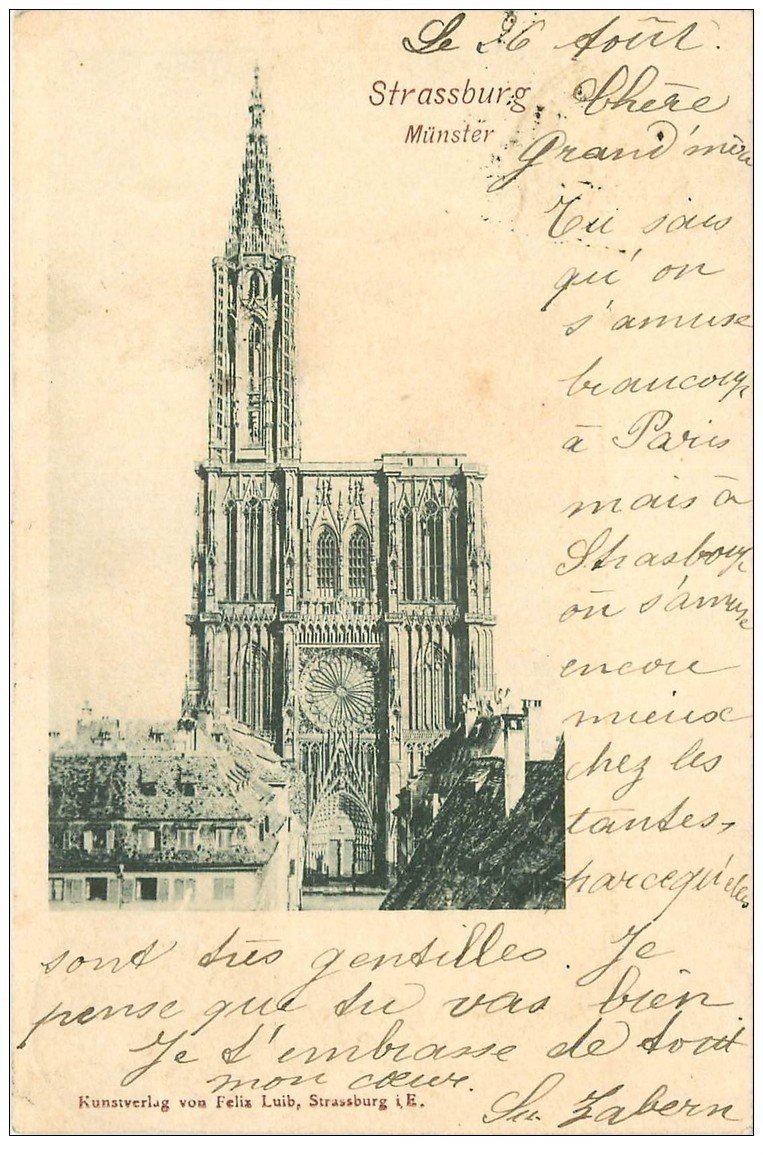 Le 26 Août.
Strassburg
Münster
Chère
Grand'mère
Tu sais
qu'on
s'amuse
beaucoup
à Paris
mais à
Strasbourg
on s'amuse
encore
mieux
chez les
tantes,
parcequ'elles
sont très gentilles. Je
pense que tu vas bien
Je t'embrasse de tout
mon cœur.
Kunstverlag von Felix Luib, Strassburg i. E.
Zabern